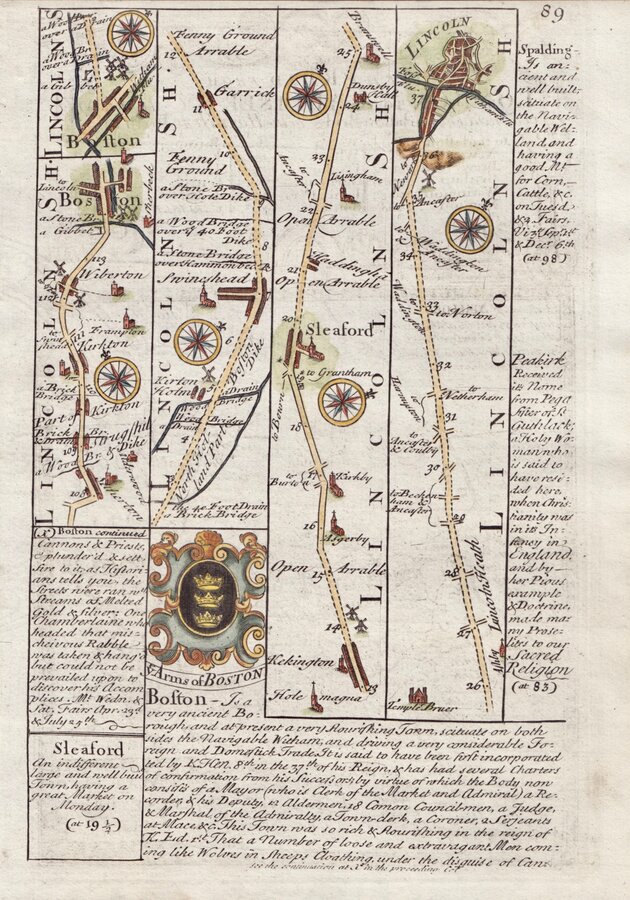 89
LINCOLNSH.
a Wood Br.
over a Drain
a Wood Br.
over a Drain
a Gibbet
Boston
to Lincoln
Boston
a Stone Br.
a Gibbet
113
Wiberton
112
Frampton
111
Kirkton
a Brick
Bridge
Part of
Kirkton
Brick Br.
& Drain
109
a Wood Br. & Dike
108
LINCOLNSH.
Fenny Ground
Arrable
12
Garrick
11
Fenny
Ground
10
a Stone Br.
over Hole Dike
a Wood Bridge
over ye 40 Foot
Dike
8
a Stone Bridge
over Hammon beck
Swineshead
6
Kirton
Holme
5
a Drain
Bridge
Wood Bridge
a Drain
4
The 40 Foot Drain
a Brick Bridge
LINCOLNSH.
25
Branswell
Dunsby
Hall
24
23
Lisingham
22
Open Arrable
21
Haddingh
Open Arrable
20
Sleaford
to Grantham
to Bourn
17
Kirkby
to
Burton
16
Aserby
Open Arrable
15
14
Kekington
13
Hole magna
LINCOLNSH.
LINCOLN
37
to
Newark
to Ancaster
to Waddington
Ancaster
34
33
to Norton
32
to
Netherham
31
to
Ancaster
& Coulby
30
to Becken
ham &
Ancaster
29
28
Lincoln Heath
27
26
Temple Bruer
LINCOLNSH.
Spalding-
Is an-
cient and
well built;
scituate on
the Navi-
gable Wel-
land, and
having a
good Mt.
for Corn,
Cattle, &c.
on Tuesd.
& 4 Fairs,
& Decr. 6th
(at 98)
Peakirk
Received
its Name
from Pega
sister of St.
Guthlack;
a Holy Wo-
man, who
is said to
have resi-
ded here,
when Chris-
tianity was
in its In-
fancy in
England,
and by
her Pious
example
& Doctrine,
made ma-
ny Prose-
lits to our
Sacred
Religion
(at 83)
(X) Boston continued
Cannons & Priests,
& plunder'd & sett
fire to it; as Histori-
ans tell you, the
Streets were ran wth
Streams of Melted
Gold & Silver; One
Chamberlaine who
headed that mis-
cheivous Rabble
was taken & hang'd
but could not be
prevailed upon to
discover his Accom
plices. Mt. Wedn. &
Sat. Fairs Apr. 23d
& July 25th
Sleaford
An indifferent
large and well built
Town, having a
great Market on
Monday.
(at 19 ½)
ye Arms of BOSTON
Boston - Is a
very ancient Bo-
rough, and at present a very flourishing Town, scituate on both
sides the Navigable Witham, and driving a very considerable Fo-
reign and Domestick Trade. It is said to have been first incorporat
ted by K. Hen. 8th in the 37th of his Reign, & has had several Charters
of confirmation from his Successors; by virtue of which the Body now
consists of a Mayor (who is Clerk of the Market and Admiral) a Re-
corder, & his Deputy, 12 Aldermen, 18 Comon Council-men, a Judge,
& Marshal of the Admiralty, a Town-clerk, a Coroner, 2 Serjeants
at Mace, &c. This Town was so rich & flourishing in the reign of
K. Ed. 1st That a Number of loose and extravagant Men com-
ing like Wolves in Sheeps Cloathing, under the disguise of Can-
see the continuation at X in the preceeding